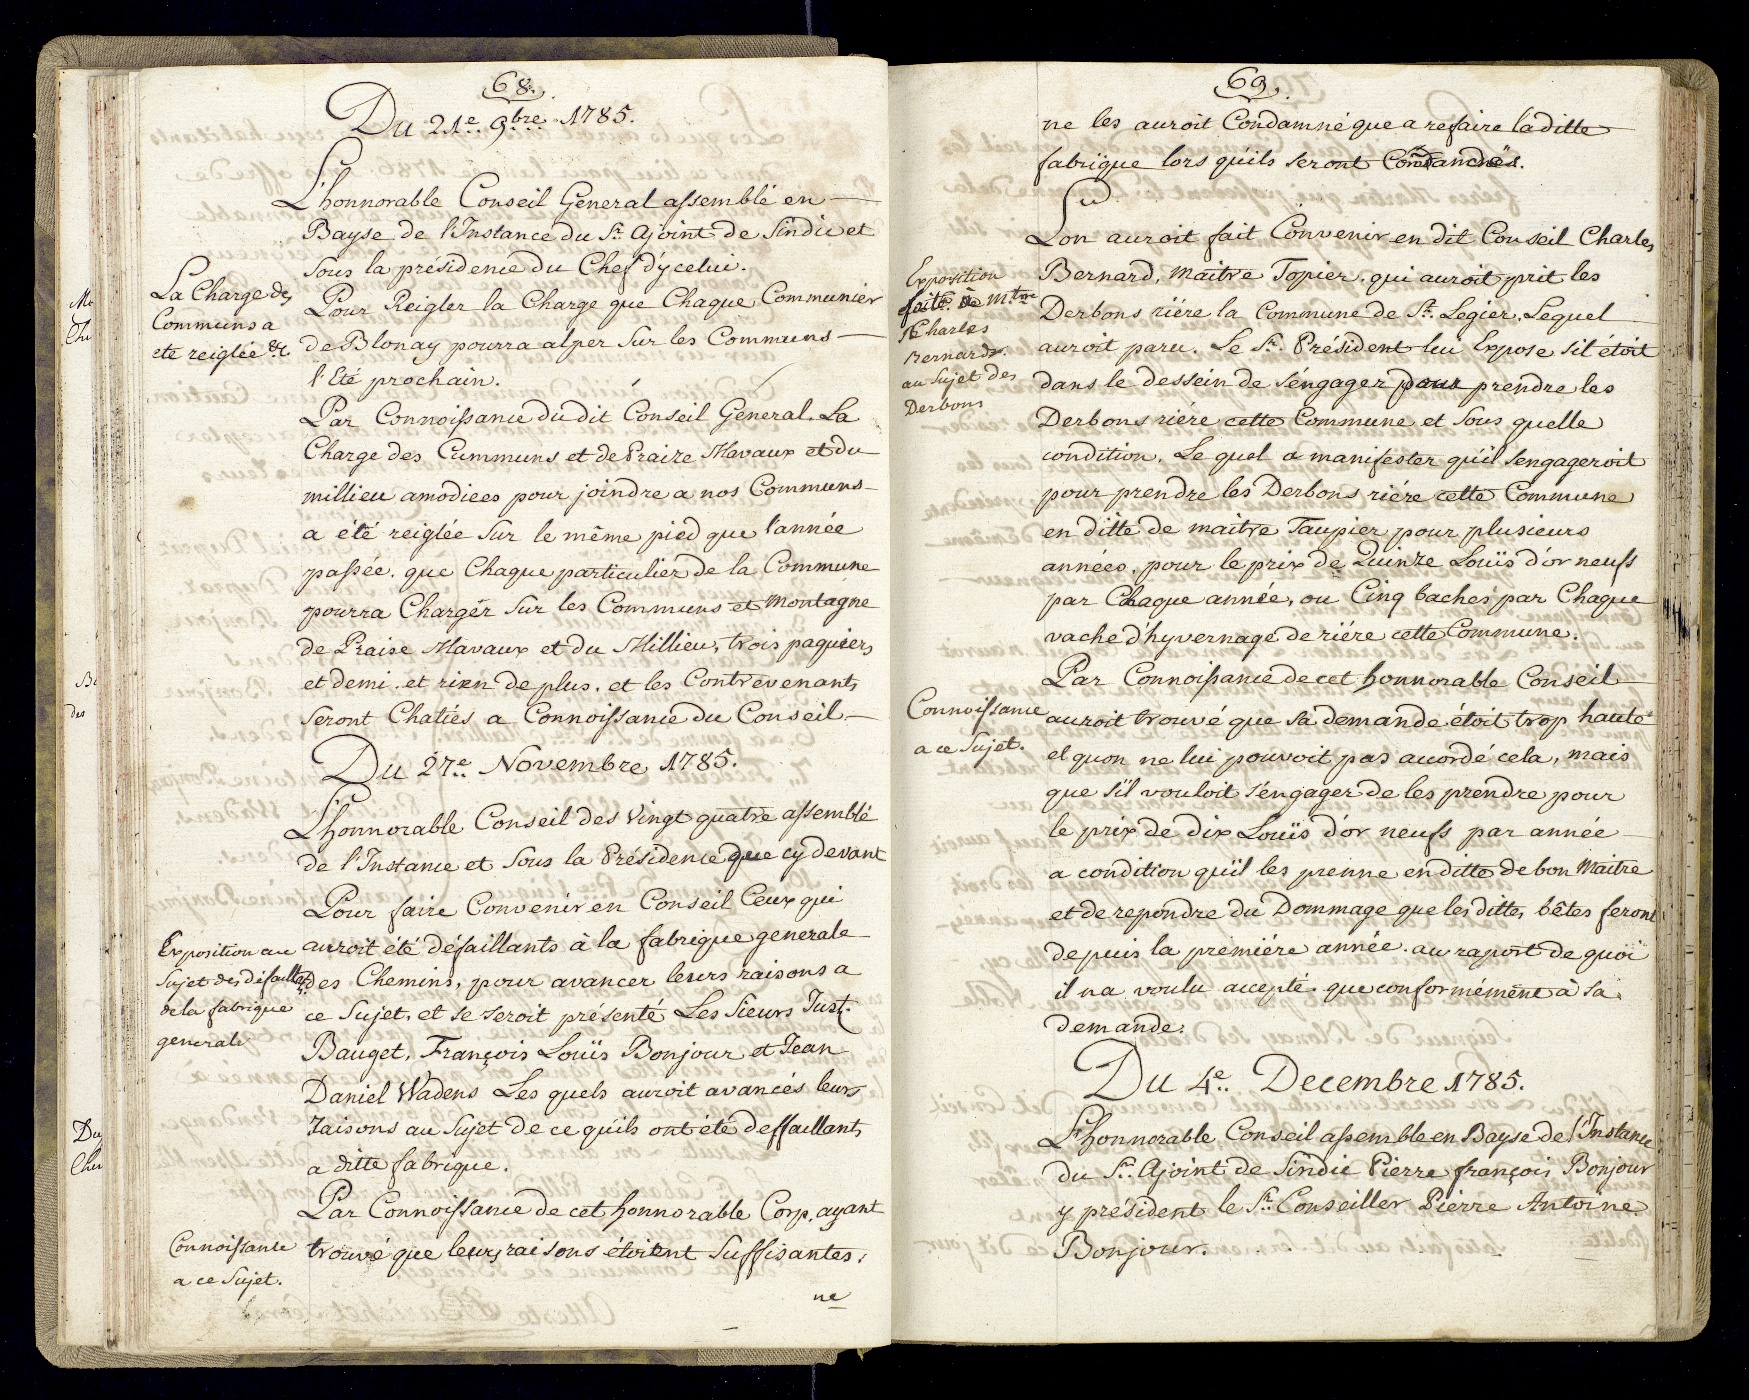 68.
Du 21e. 9bre. 1785.
L'honnorable Conseil General assemblé en
Bayse de l'Instance du Sr. Ajoint de Sindic et
sous la présidence du Chef d'ycelui.
La Charge des
Communs a
ete reiglée &c
Pour Reigler la Charge que Chaque Communier
de Blonay pourra alper sur les Communs
l'Eté prochain.
Par Connoissance du dit Conseil General. La
Charge des Cummuns et de Praize Mavaux et du
millieu amodiees pour joindre a nos Communs
a été reiglée sur le même pied que l'année
passée. que Chaque particulier de la Commune
pourra Chargér sur les Communs et Montagne
de Praise Mavaux et du Millieu, trois paquiers
et demi. et rien de plus. et les Contrevenants
seront Chatiés a Connoissance du Conseil.
Du 27e. Novembre 1785.
L'honnorable Conseil des Vingt quatre assemblé
de l'Instance et sous la Présidence que cy devant
Pour faire Convenir en Conseil Ceux qui
Exposition au
sujet des défaillts.
de la fabrique
generale
auroit été défaillants à la fabrique generale
des Chemins, pour avancer leurs raisons a
ce sujet, et se seroit présenté Les sieurs Just.
Bauget, François Louïs Bonjour et Jean
Daniel Wadens Les quels auroit avancés leurs
raisons au sujet de ce qu'ils ont été deffaillants
a ditte fabrique.
Par Connoissance de cet honnorable Corp, ayant
Connoissance
a ce sujet.
trouvé que leurs raisons étoient suffisantes,
ne
69.
ne les auroit Condamné que a refaire la ditte
fabrique lors qu'ils seront
Du
Lon auroit fait Convenir en dit Conseil Charles
Exposition
faite à Mtre
Charles
Bernard.
au sujet des
Derbons
Bernard, Maitre Topier. qui auroit prit les
Derbons riére la Commune de St. Legier, Lequel
auroit paru. Le Sr. Président lui Expose s'il étoit
dans le dessein de s'éngager pour prendre les
Derbons riére cette Commune et sous quelle
condition. Le quel a manifester qu'il s'engageroit
pour prendre les Derbons riére cette Commune
en ditte de maitre Taupier pour plusieurs
années. pour le prix de Quinze Louïs d'or neufs
par Chaque année, ou Cinq baches par Chaque
vache d'hyvernage de riére cette Commune.
Par Connoissance de cet honnorable Conseil
Connoissance
a ce sujet.
auroit trouvé que sa demande étoit trop haute
et quon ne lui pouvoit pas accordé cela, mais
que s'il vouloit s'éngager de les prendre pour
le prix de dix Louïs d'or neufs par année
a condition qu'il les prenne en ditte de bon Maitre
et de repondre du Dommage que les dittes bêtes feront
depuis la premiére année. au raport de quoi
il na voulu accepté que conformément à sa
demande.
Du 4e. Decembre 1785.
L'honnorable Conseil assemble en Bayse de l'Instance
du Sr. Ajoint de Sindic Pierre françois Bonjour
y président le Sr. Conseiller Pierre Antoine
Bonjour.